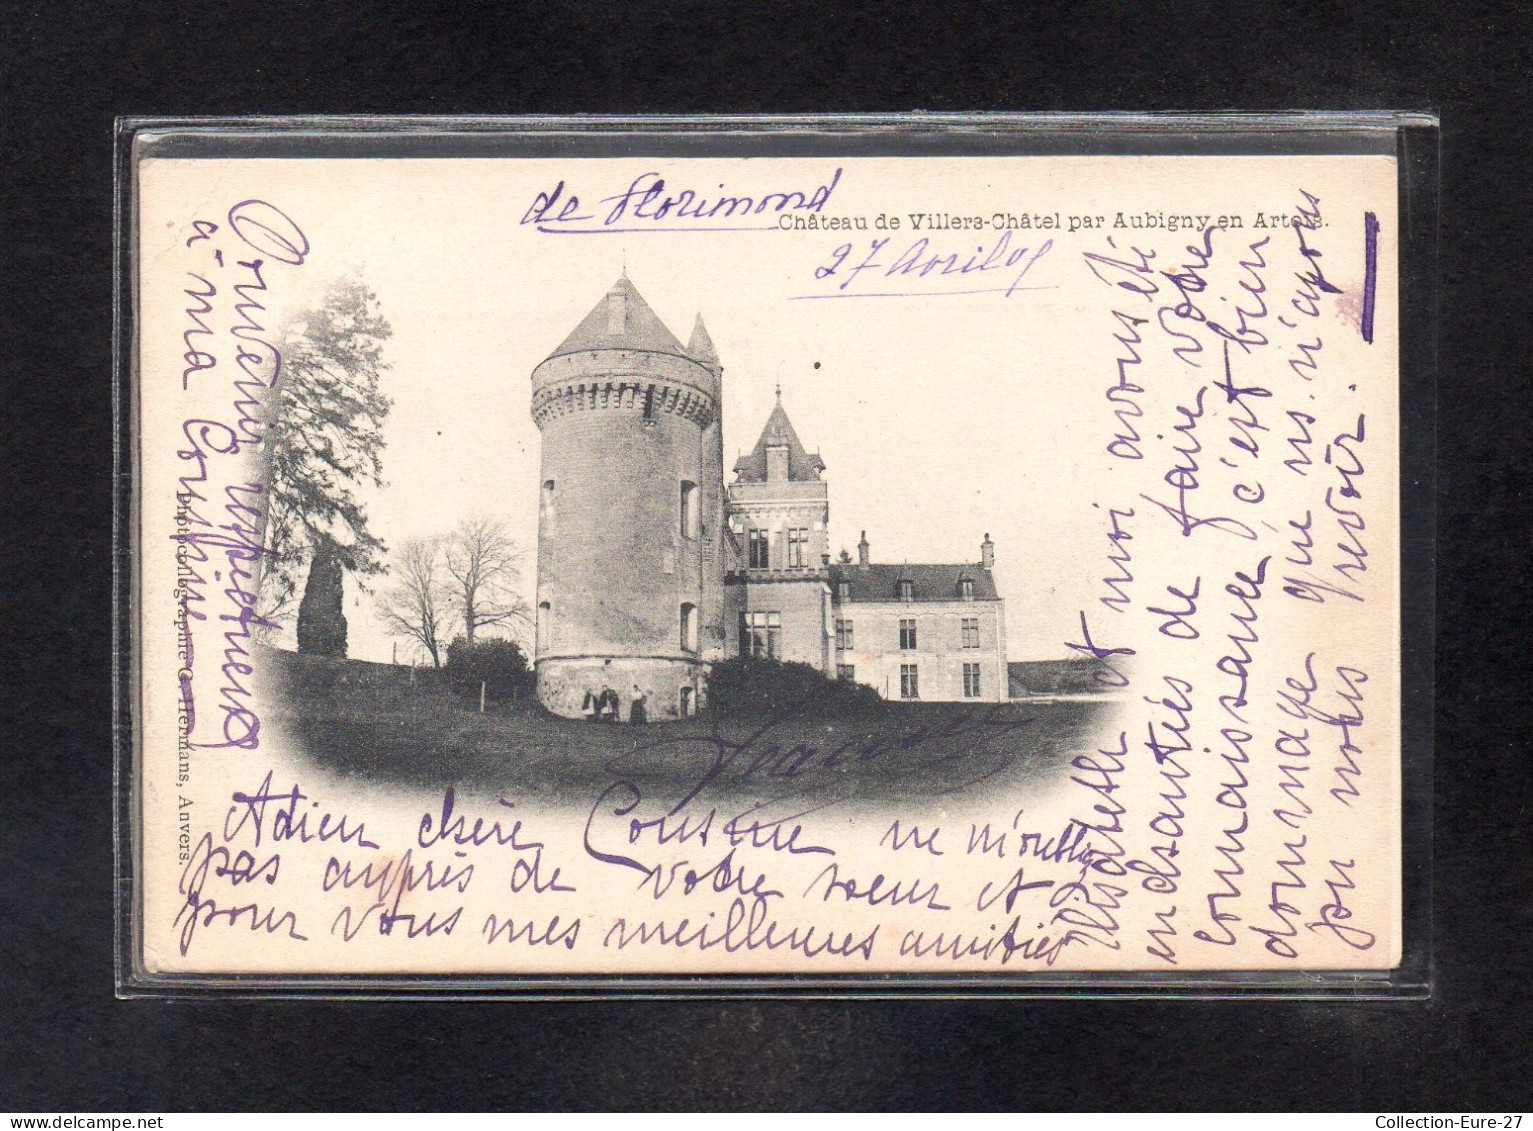 de Florimond
Château de Villers-Châtel par Aubigny en Artois.
27 Avril 01
Souvenir respectueux
à ma Cousine
Photocollographie G. Hermans, Anvers.
Elisabeth et moi avons été
enchantés de faire votre
connaissance, c'est bien
dommage que ns. n'ayons
pu vous revoir.
Adieu chère Cousine ne m'oubliez
pas auprès de votre soeur et
pour vous mes meilleures amitiés
Collection-Eure-27